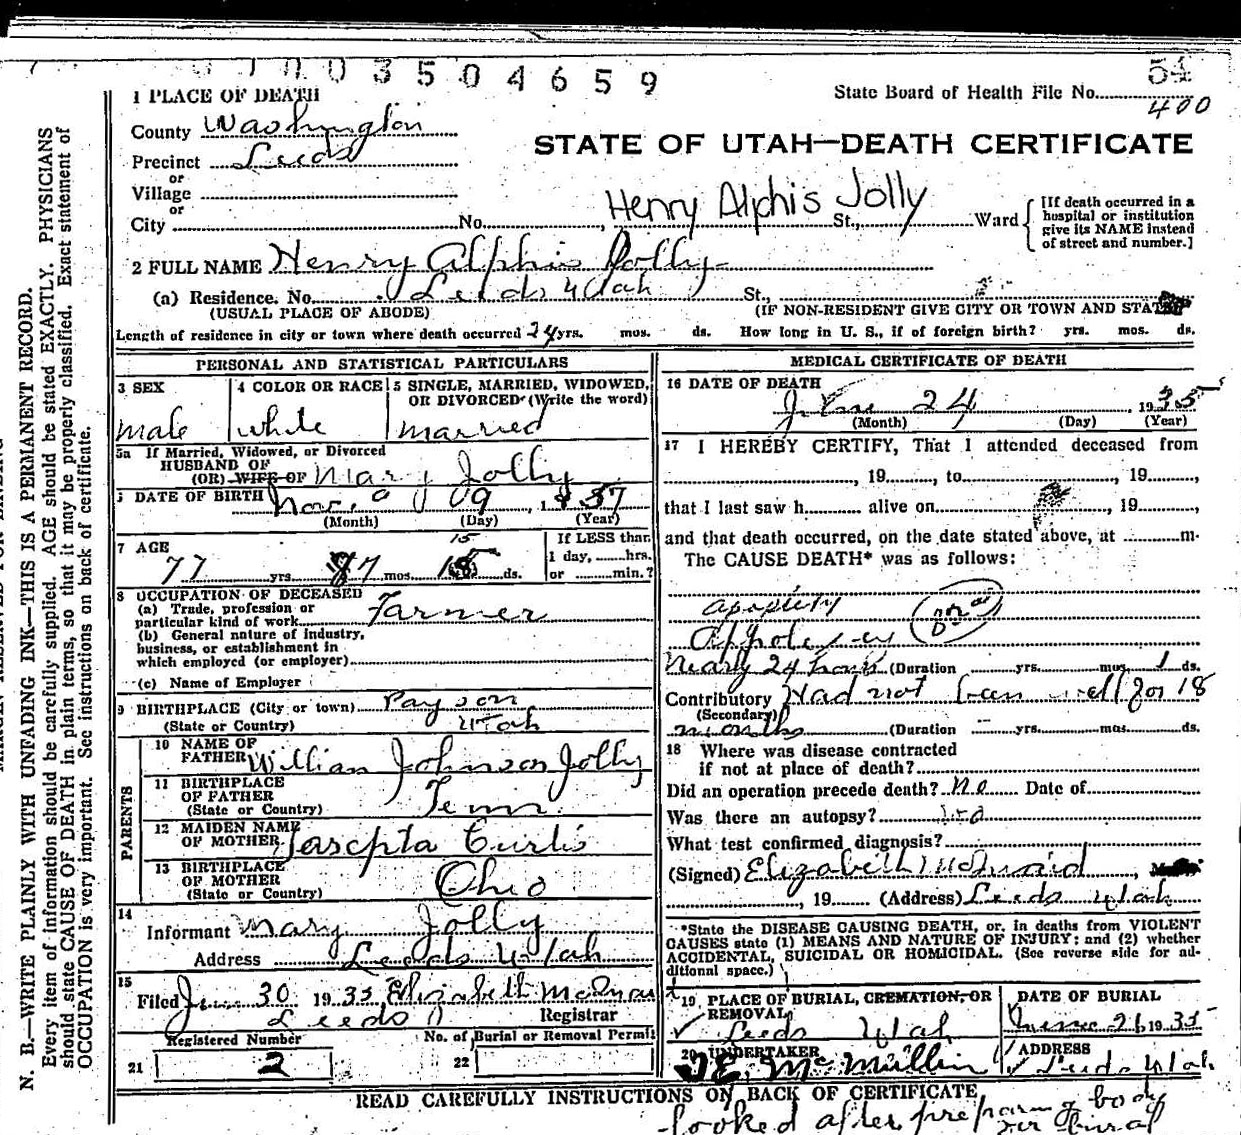 0 0 3 5 0 4 6 5 9
54
1 PLACE OF DEATH
State Board of Health File No.
400
County Washington
STATE OF UTAH—DEATH CERTIFICATE
Precinct Leeds
or
Village
or
City No. Henry Alphis Jolly St., Ward
[If death occurred in a hospital or institution give its NAME instead of street and number.]
2 FULL NAME Henry Alphis Jolly
(a) Residence. No. Leeds Utah St.,
(USUAL PLACE OF ABODE) (IF NON-RESIDENT GIVE CITY OR TOWN AND STATE
Length of residence in city or town where death occurred 24 yrs. mos. ds. How long in U. S., if of foreign birth? yrs. mos. ds.
PERSONAL AND STATISTICAL PARTICULARS
3 SEX
male
4 COLOR OR RACE
white
5 SINGLE, MARRIED, WIDOWED, OR DIVORCED (Write the word)
married
5a If Married, Widowed, or Divorced
HUSBAND OF
(OR) WIFE OF Mary Jolly
6 DATE OF BIRTH Nov. 9 09, 1857
(Month) (Day) (Year)
7 AGE
77 yrs. 7 mos. 15 ds.
If LESS than
1 day, hrs.
or min.?
8 OCCUPATION OF DECEASED
(a) Trade, profession or
particular kind of work Farmer
(b) General nature of industry,
business, or establishment in
which employed (or employer)
(c) Name of Employer
9 BIRTHPLACE (City or town) Payson
(State or Country) Utah
PARENTS
10 NAME OF
FATHER William Johnson Jolly
11 BIRTHPLACE
OF FATHER
(State or Country) Tenn
12 MAIDEN NAME
OF MOTHER Curtis
13 BIRTHPLACE
OF MOTHER
(State or Country) Ohio
14
Informant Mary Jolly
Address Leeds Utah
15
Filed June 30 1935 Elizabeth
Leeds Registrar
Registered Number
21 2
No. of Burial or Removal Permit
22
MEDICAL CERTIFICATE OF DEATH
16 DATE OF DEATH
June 24, 1935
(Month) (Day) (Year)
17 I HEREBY CERTIFY, That I attended deceased from
, 19, to, 19,
that I last saw h alive on, 19,
and that death occurred, on the date stated above, at m.
The CAUSE DEATH* was as follows:
Nearly 24 hours (Duration yrs. mos. 1 ds.
Contributory Had not been well for 18
(Secondary)
months (Duration yrs. mos. ds.
18 Where was disease contracted
if not at place of death?
Did an operation precede death? no Date of
Was there an autopsy?
What test confirmed diagnosis?
(Signed) Elizabeth
, 19 (Address) Leeds Utah
*State the DISEASE CAUSING DEATH, or, in deaths from VIOLENT
CAUSES state (1) MEANS AND NATURE OF INJURY; and (2) whether
ACCIDENTAL, SUICIDAL OR HOMICIDAL. (See reverse side for ad-
ditional space.)
19 PLACE OF BURIAL, CREMATION, OR
REMOVAL
Leeds Utah
DATE OF BURIAL
June 26 1935
20 UNDERTAKER
J E McMullin
ADDRESS
Leeds Utah
READ CAREFULLY INSTRUCTIONS ON BACK OF CERTIFICATE
looked after preparing body
for burial
N. B.—WRITE PLAINLY WITH UNFADING INK—THIS IS A PERMANENT RECORD.
Every item of information should be carefully supplied. AGE should be stated EXACTLY. PHYSICIANS
should state CAUSE OF DEATH in plain terms, so that it may be properly classified. Exact statement of
OCCUPATION is very important. See instructions on back of certificate.